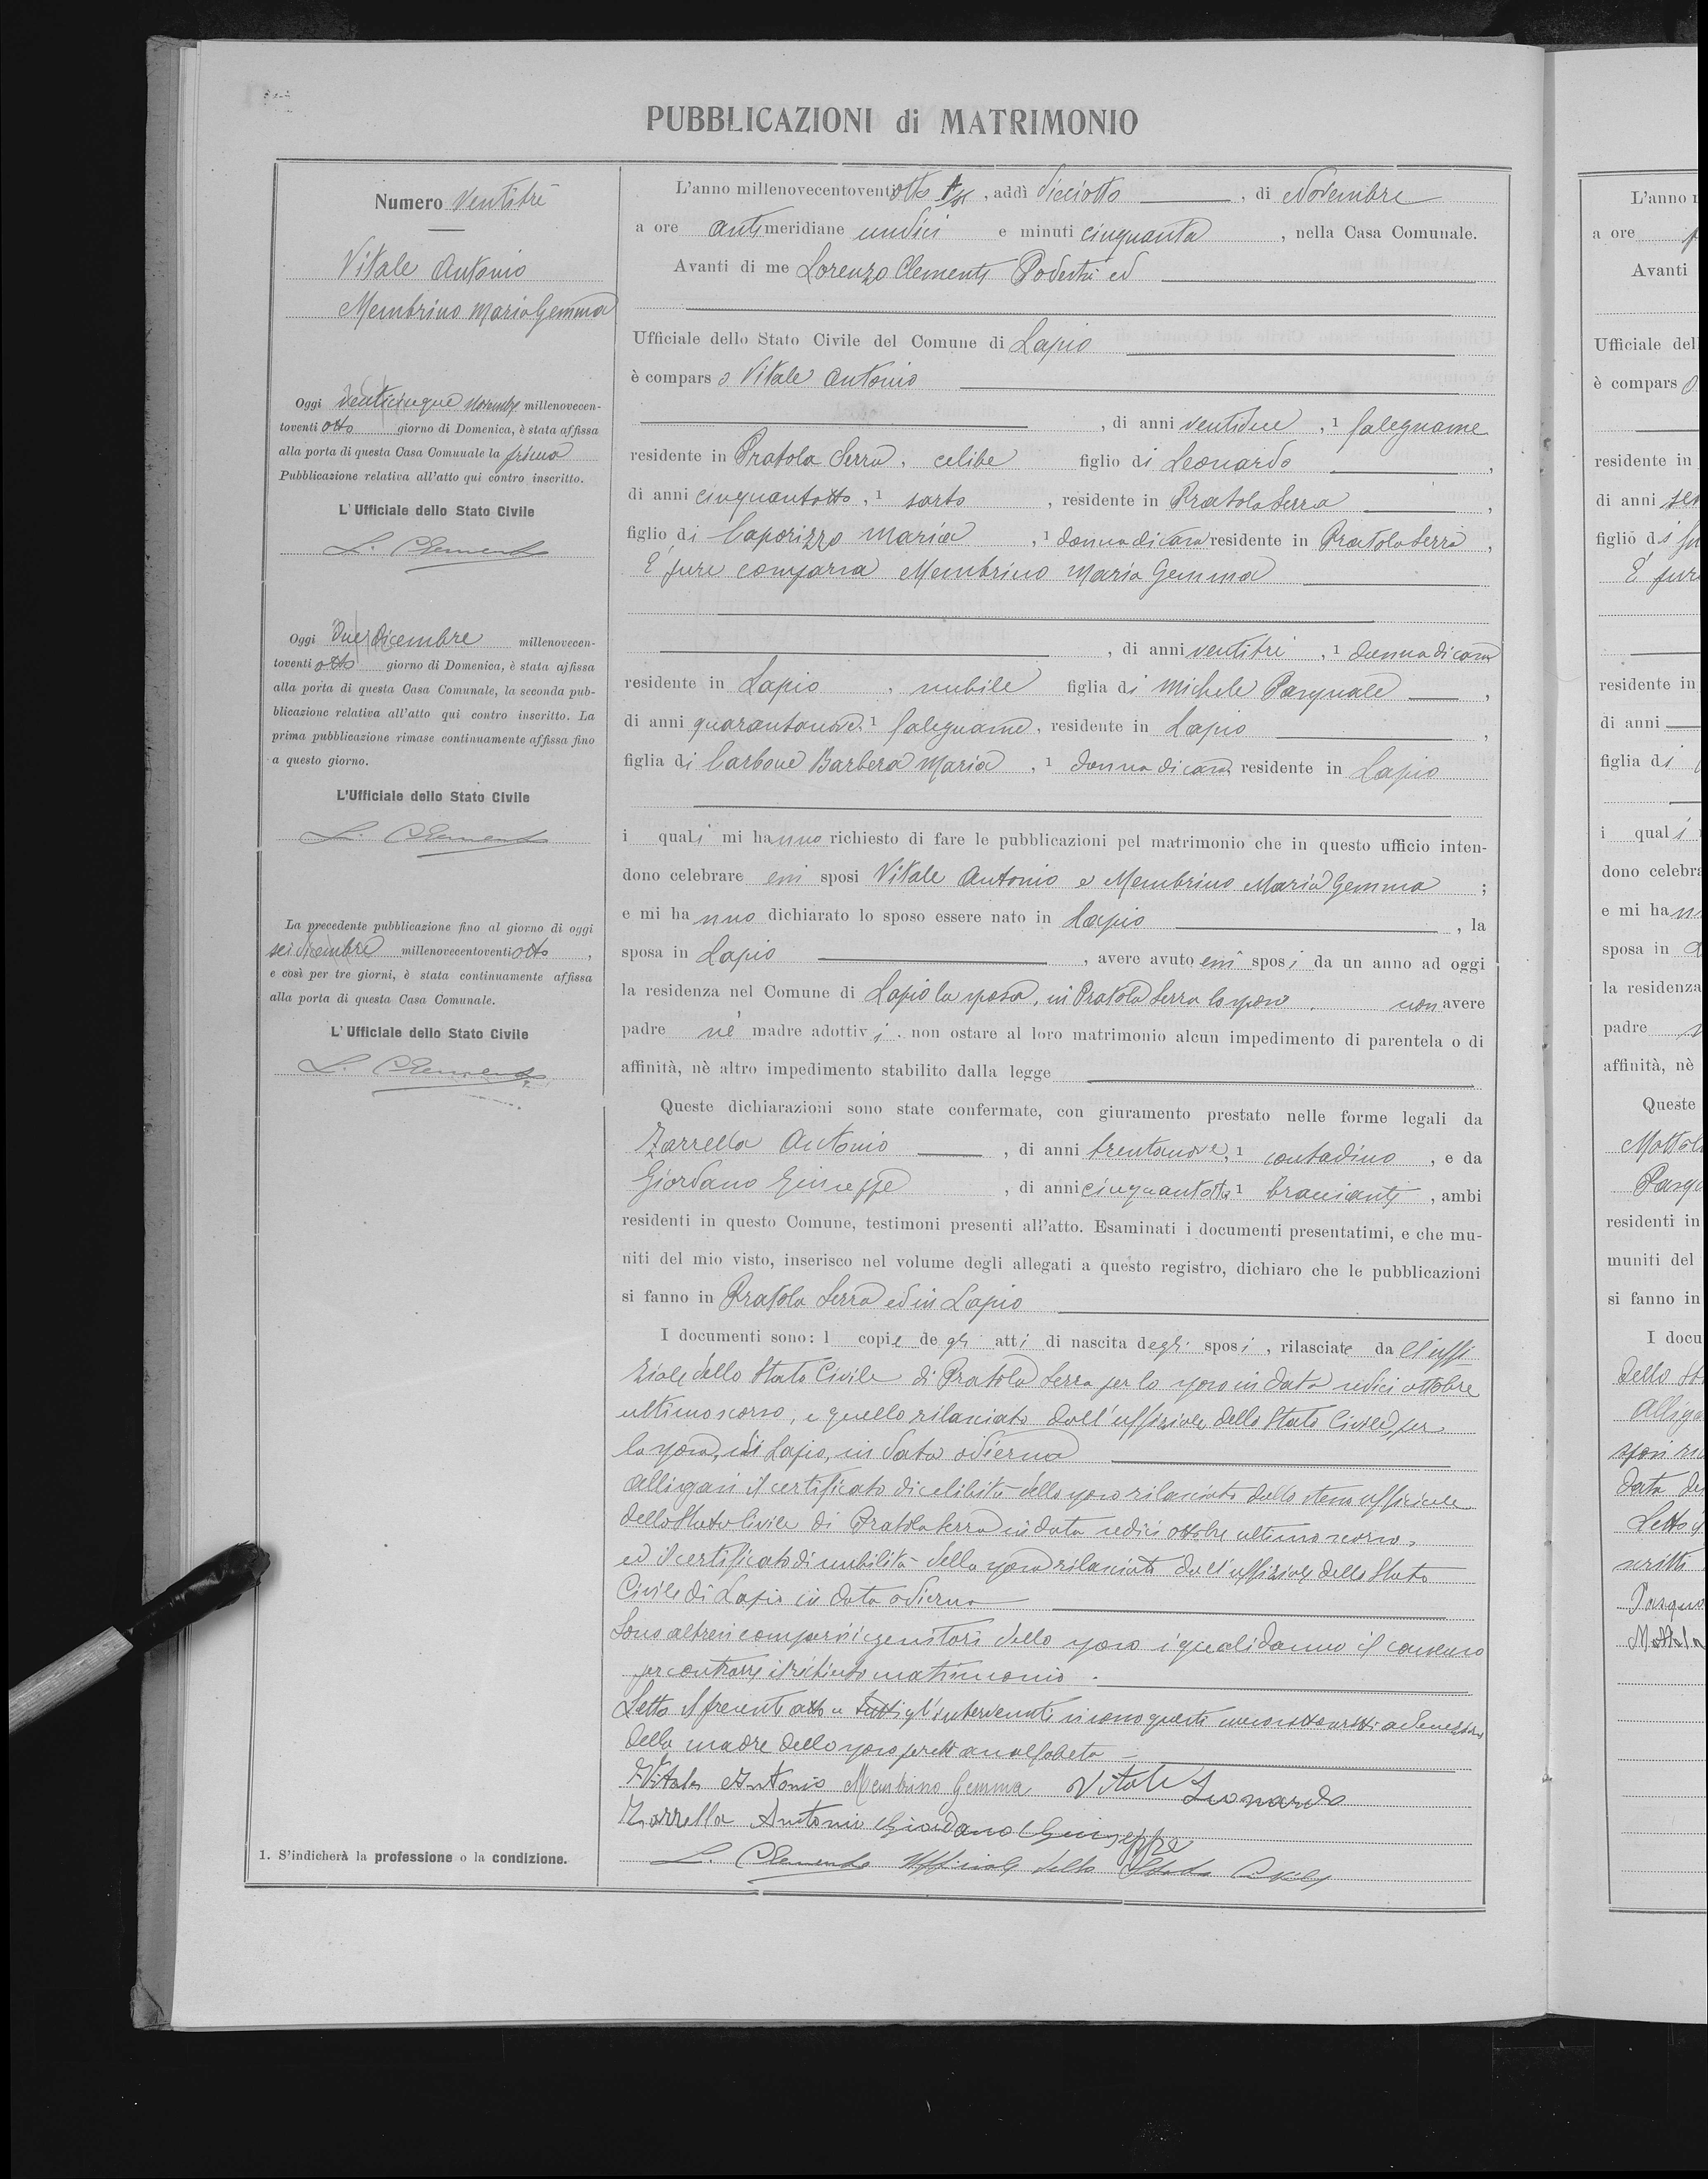 PUBBLICAZIONI di MATRIMONIO
Numero Ventitrè
Vitale Antonio
Membrino Maria Gemma
Oggi venticinque novembre millenovecen-
toventi otto giorno di Domenica, è stata affissa
alla porta di questa Casa Comunale la prima
Pubblicazione relativa all'atto qui contro inscritto.
L'Ufficiale dello Stato Civile
L. Clemente
Oggi due dicembre millenovecen-
toventi otto giorno di Domenica, è stata affissa
alla porta di questa Casa Comunale, la seconda pub-
blicazione relativa all'atto qui contro inscritto. La
prima pubblicazione rimase continuamente affissa fino
a questo giorno.
L'Ufficiale dello Stato Civile
L. Clemente
La precedente pubblicazione fino al giorno di oggi
sei dicembre millenovecentoventi otto,
e così per tre giorni, è stata continuamente affissa
alla porta di questa Casa Comunale.
L'Ufficiale dello Stato Civile
L. Clemente
1. S'indicherà la professione o la condizione.
L'anno millenovecentoventi otto, addì diciotto, di Novembre
a ore antimeridiane undici e minuti cinquanta, nella Casa Comunale.
Avanti di me Lorenzo Clemente Podestà ed
Ufficiale dello Stato Civile del Comune di Lapio
è comparso Vitale Antonio
, di anni ventidue, 1 falegname
residente in Pratola Serra, celibe figlio di Leonardo,
di anni cinquantotto, 1 sarto, residente in Pratola Serra,
figlio di Caporizzo Maria, 1 donna di casa residente in Pratola Serra,
È pure comparsa Membrino Maria Gemma
, di anni ventitrè, 1 donna di casa
residente in Lapio, nubile figlia di Michele Pasquale,
di anni quarantanove, 1 falegname, residente in Lapio,
figlia di Carbone Barbera Maria, 1 donna di casa residente in Lapio
i quali mi hanno richiesto di fare le pubblicazioni pel matrimonio che in questo ufficio inten-
dono celebrare essi sposi Vitale Antonio e Membrino Maria Gemma;
e mi hanno dichiarato lo sposo essere nato in Lapio, la
sposa in Lapio, avere avuto essi sposi da un anno ad oggi
la residenza nel Comune di Lapio la sposa, in Pratola Serra lo sposo, non avere
padre nè madre adottivi, non ostare al loro matrimonio alcun impedimento di parentela o di
affinità, nè altro impedimento stabilito dalla legge
Queste dichiarazioni sono state confermate, con giuramento prestato nelle forme legali da
Zarrella Antonio, di anni trentanove, 1 contadino, e da
Giordano Giuseppe, di anni cinquantotto, 1 bracciante, ambi
residenti in questo Comune, testimoni presenti all'atto. Esaminati i documenti presentatimi, e che mu-
niti del mio visto, inserisco nel volume degli allegati a questo registro, dichiaro che le pubblicazioni
si fanno in Pratola Serra ed in Lapio
I documenti sono: 1 copie degli atti di nascita degli sposi, rilasciate dall'uffi
ziale dello Stato Civile di Pratola Serra per lo sposo in data sedici ottobre
ultimo scorso, e quello rilasciato dall'uffiziale dello Stato Civile, per
la sposa, di Lapio, in data odierna
Alligasi il certificato di celibità dello sposo rilasciato dallo stesso ufficiale
dello Stato Civile di Pratola Serra in data sedici ottobre ultimo scorso,
ed il certificato di nubilità della sposa rilasciato dall'uffiziale dello Stato
Civile di Lapio in data odierna
Sono altresì comparsi i genitori dello sposo i quali danno il consenso
per contrarre il richiesto matrimonio.
Letto il presente atto a tutti gl'intervenuti si sono questi meco sottoscritti ad eccezione
della madre dello sposo perchè analfabeta
Vitale Antonio Membrino Gemma Vitale Leonardo
Zarrella Antonio Giordano Giuseppe
L. Clemente Ufficiale dello Stato Civile
L'anno
a ore
Avanti
Ufficiale del
è comparso
residente in
di anni
figlio di
È pure
residente in
di anni
figlia di
i quali
dono celebra
e mi ha
sposa in
la residenza
padre
affinità, nè
Queste
residenti in
muniti del
si fanno in
I docu